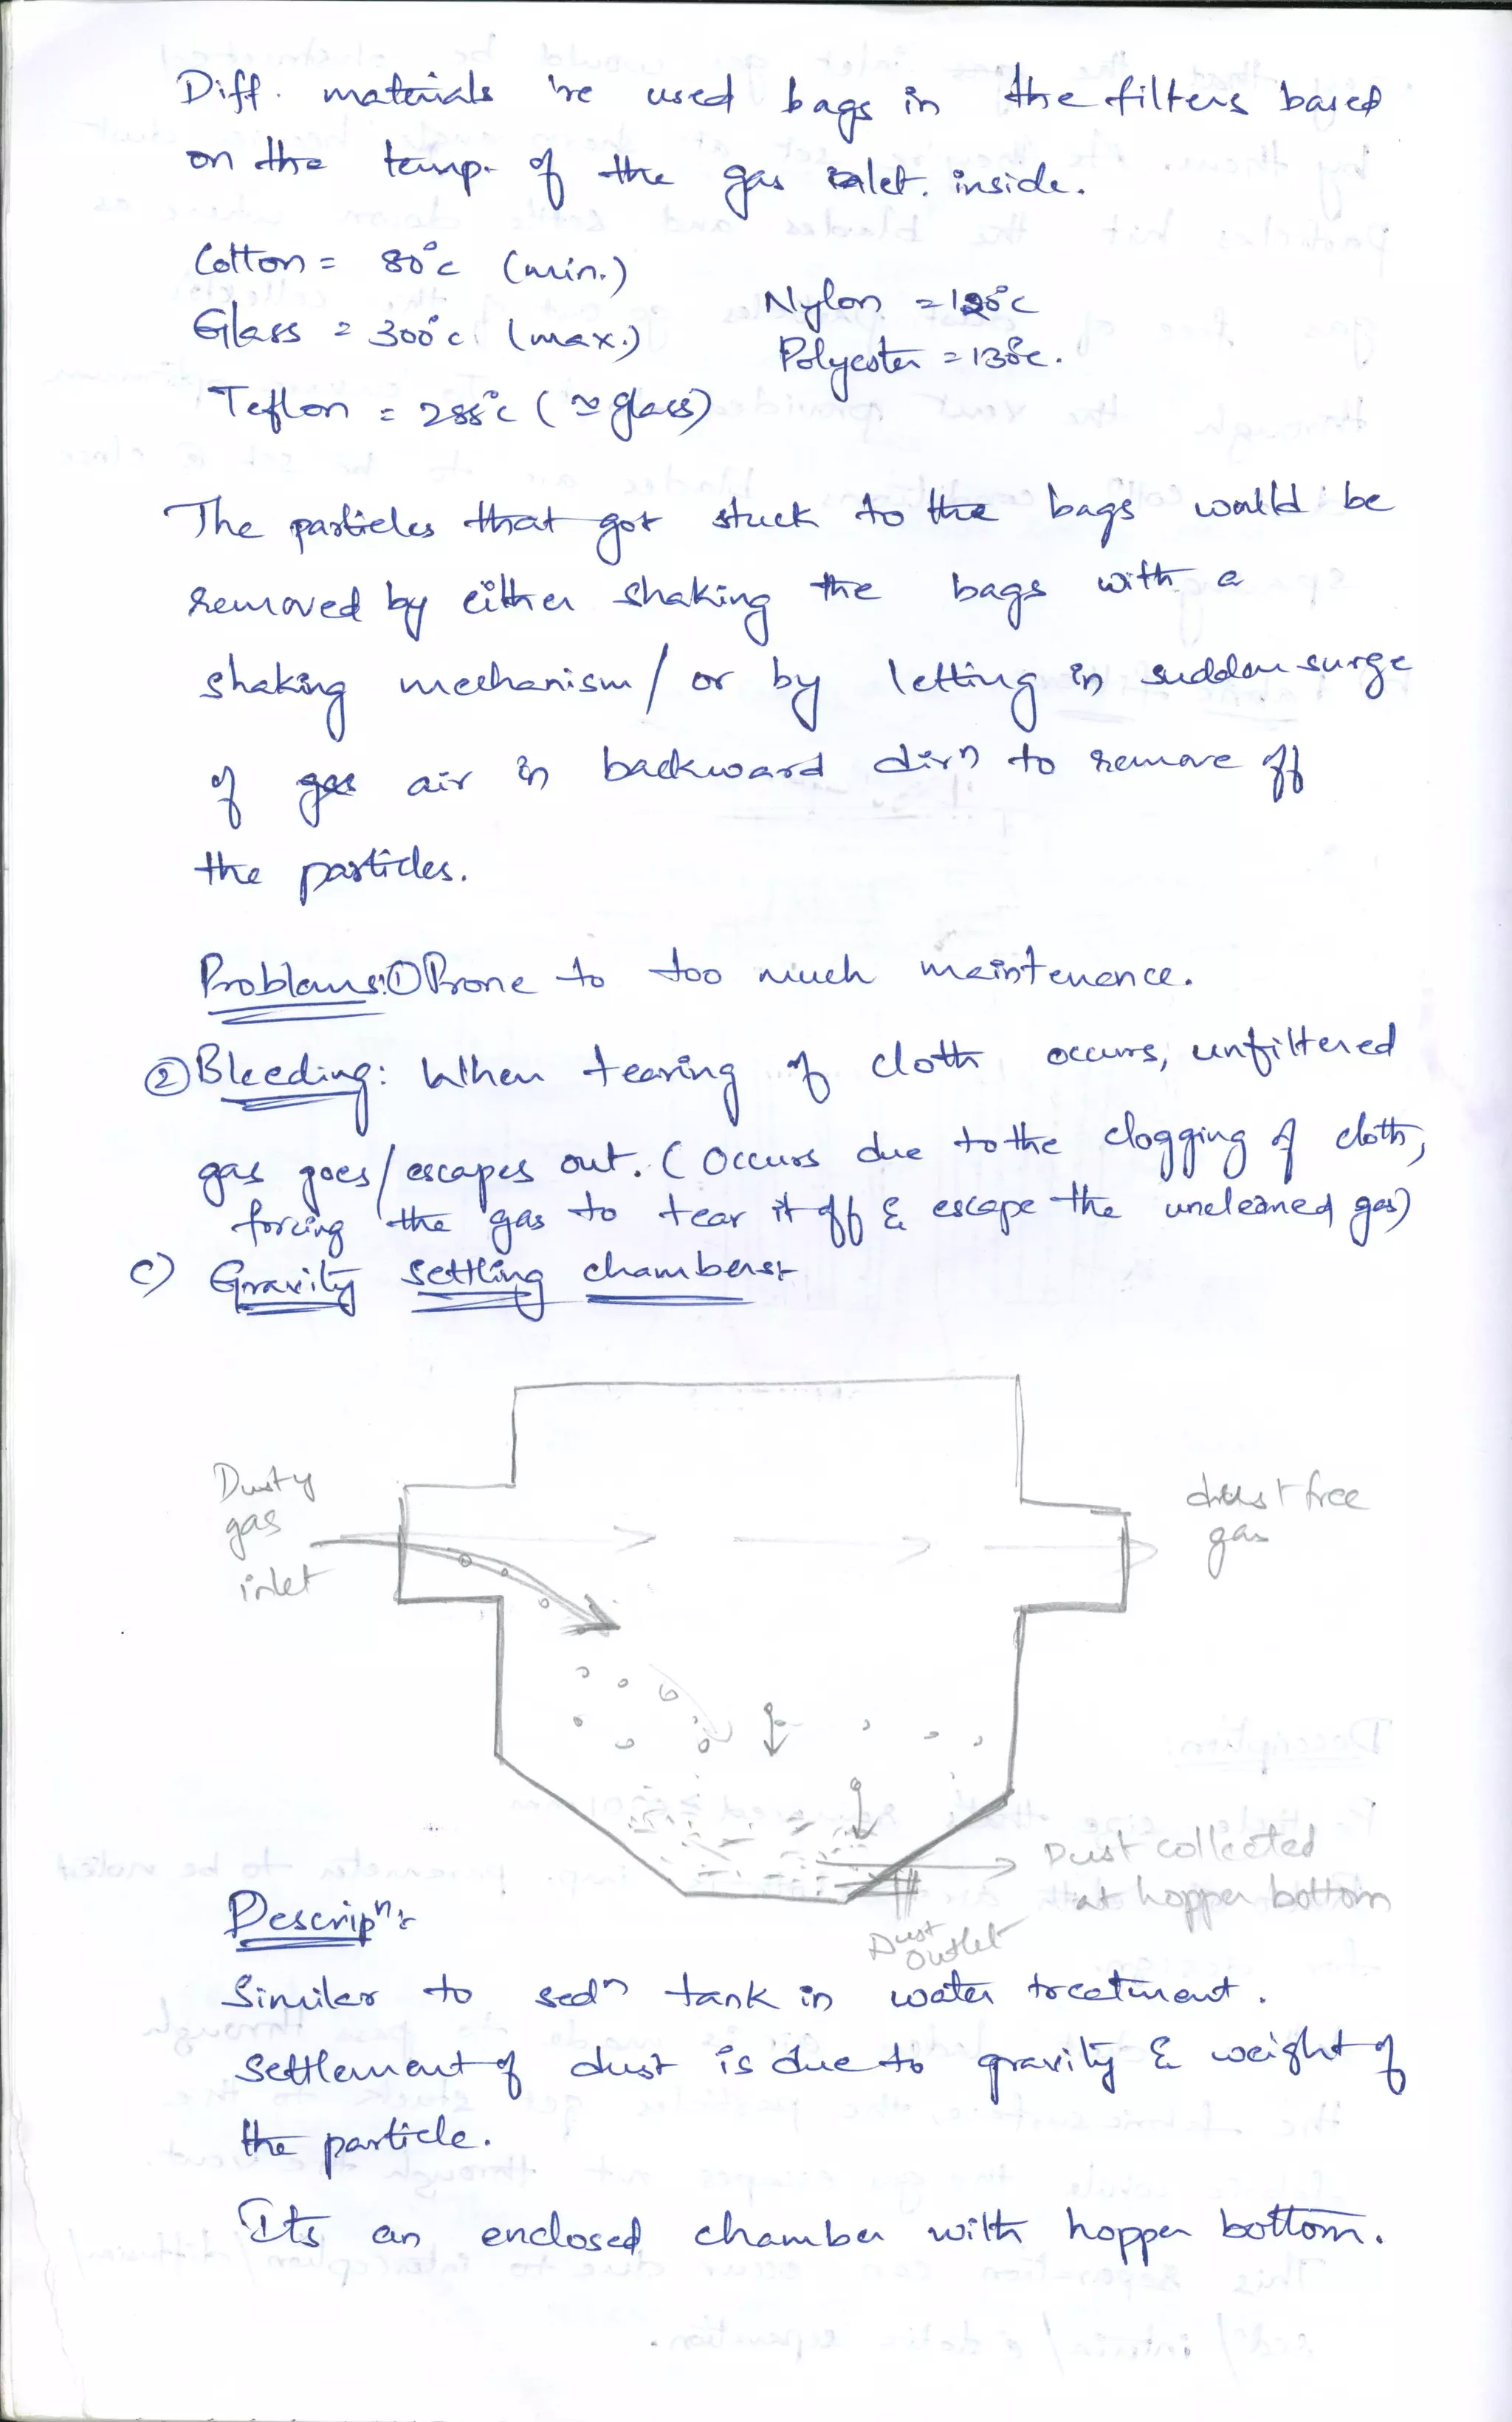 Diff. materials 're used bags in the filters based
on the temp. of the gas inlet. inside.
Cotton = 80°c (min.)
Nylon = 120°c
Glass = 300°c. (max.)
Polyester = 130°c.
Teflon = 288°c (≈ glass)
The particles that got stuck to the bags would be
removed by either shaking the bags with a
shaking mechanism / or by letting in sudden surge
of gas air in backward dirn to remove off
the particles.
Problems: ① Prone to too much maintenence.
② Bleeding: When tearing of cloth occurs, unfiltered
gas goes/escapes out. (Occurs due to the clogging of cloth,
forcing the gas to tear it off & escape the uncleaned gas)
c) Gravity settling chambers:-
Dusty
gas
inlet
dust free
gas
Dust collected
at hopper bottom
Dust
outlet
Descripn:-
Similar to sedn tank in water treatment.
Settlement of dust is due to gravity & weight of
the particle.
Its an enclosed chamber with hopper bottom.